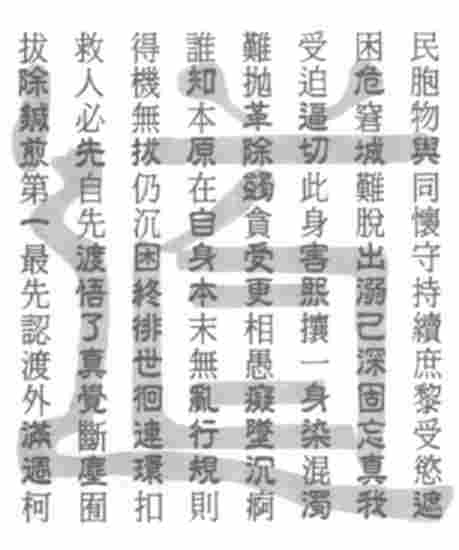 民胞物與同懷守持續庶黎受慾遮
困危窘城難脫出溺己深固忘真我
受迫逼切此身害熙攘一身染混濁
難拋革除蠲貪受更相愚癡墜沉痾
誰知本原在自身本末無亂行規則
得機無拔仍沉困終徘世徊連環扣
救人必先自先渡悟了真覺斷塵囿
拔除鍼煎第一最先認渡外滿週柯
道